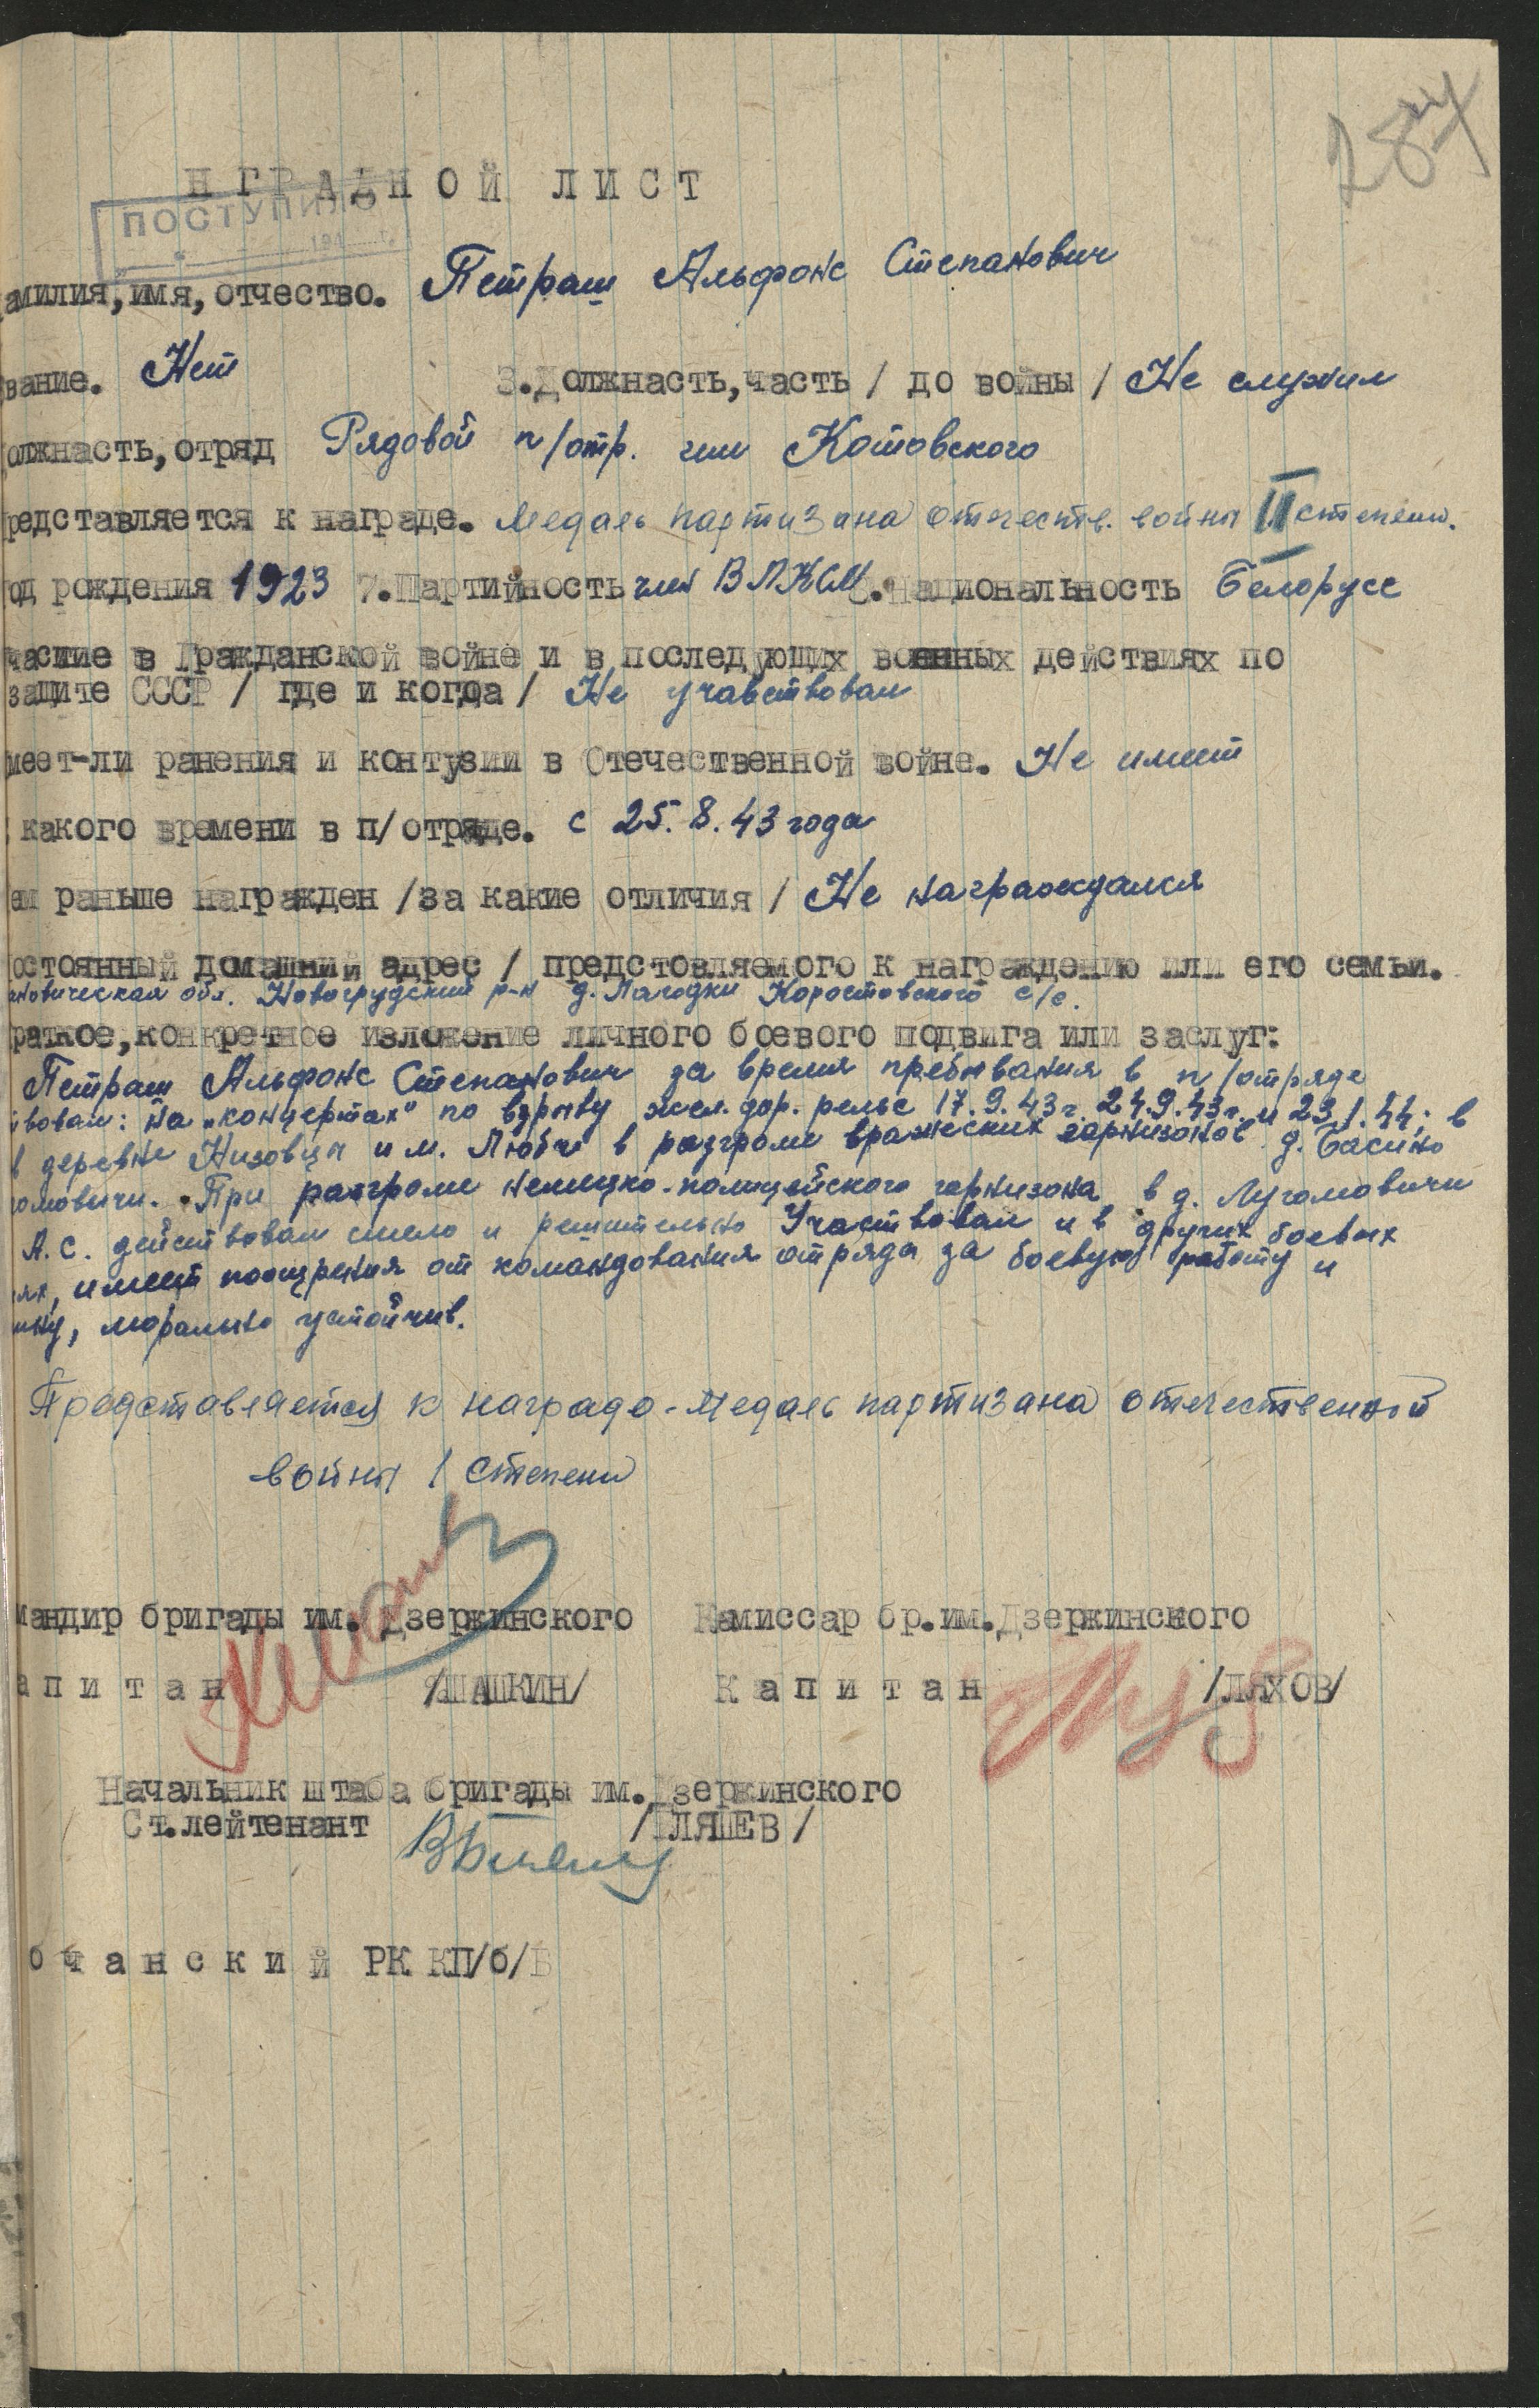 284
НГРАДНОЙ ЛИСТ
ПОСТУПИЛО
194 г.
амилия, имя, отчество. Петраш Альфонс Степанович
вание. Нет 3. Должнасть, часть / до войны / Не служил
олжнасть, отряд Рядовой п/отр. им Котовского
редставляется к награде. Медаль партизана отечеств. войны II степени.
од рождения 1923 7. Партийность член ВЛКСМ 8. Национальность Белорусс
частие в Гражданской войне и в последующих военных действиях по
защите СССР / где и когда / Не учавствовал
меет-ли ранения и контузии в Отечественной войне. Не имеет
какого времени в п/отряде. с 25.8.43 года
ем раньше награжден /за какие отличия / Не награждался
остоянный домашний адрес / предстовляемого к награждению или его семьи.
ановическая обл. Новогрудский р-н д. Лагодки Коростовского с/с.
раткое, конкретное изложение личного боевого подвига или заслуг:
Петраш Альфонс Степанович за время пребывания в п/отряде
твовал: на „концертах" по взрыву жел. дор. рельс 17.9.43г. 24.9.43г. и 23.1.44; в
в деревне Низовцы и м. Любч в разгроме вражеских гарнизонов д. Басино
гомовичи. При разгроме немецко-полицейского гарнизона в д. Лугомовичи
А.С. действовал смело и решительно Участвовал и в других боевых
иях, имеет поощрения от командования отряда за боевую работу и
ину, морально устойчив.
Представляется к награде - Медаль партизана отечественной
войны I степени
мандир бригады им. Дзержинского Камиссар бр. им. Дзержинского
апитан /ШАШКИН/ Капитан /ЛЯХОВ/
Начальник штаба бригады им. Дзержинского
Ст. лейтенант /БЛЯШЕВ/
бчанский РК КП/б/Б